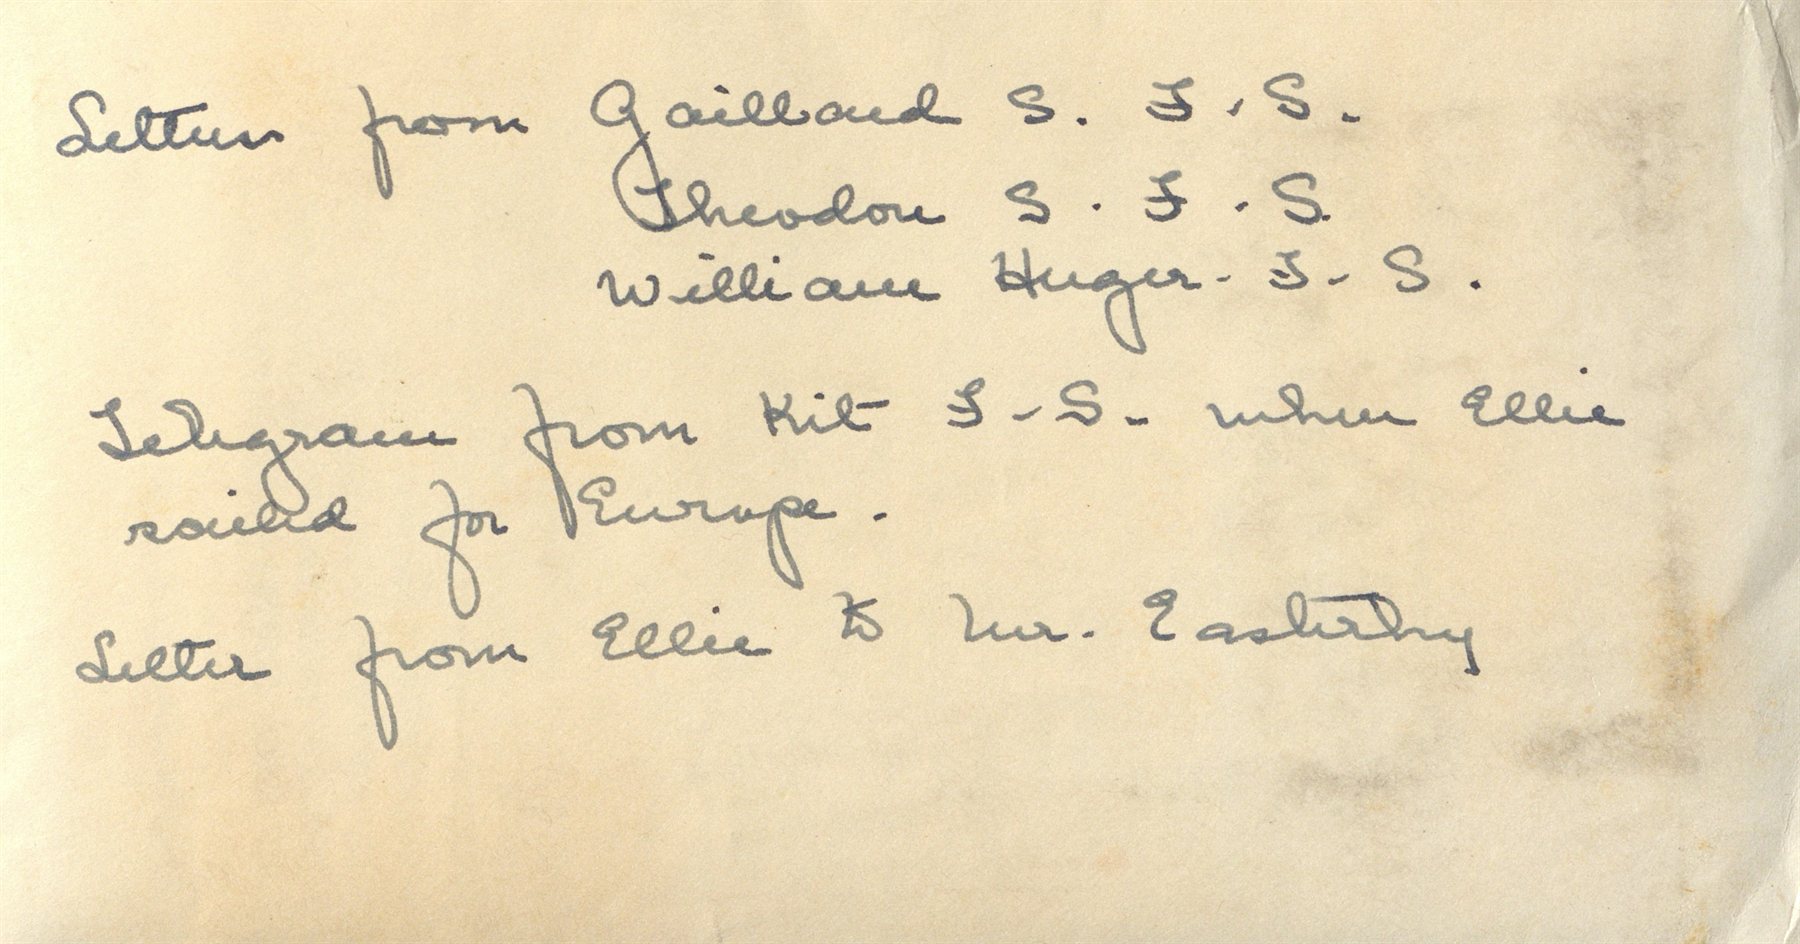 Letters from Gaillard S. F. S.
Theodore S. F. S.
William Huger F. S.
Telegram from Kit F. S. when Ellie
sailed for Europe.
Letter from Ellie to Mr. Easterby